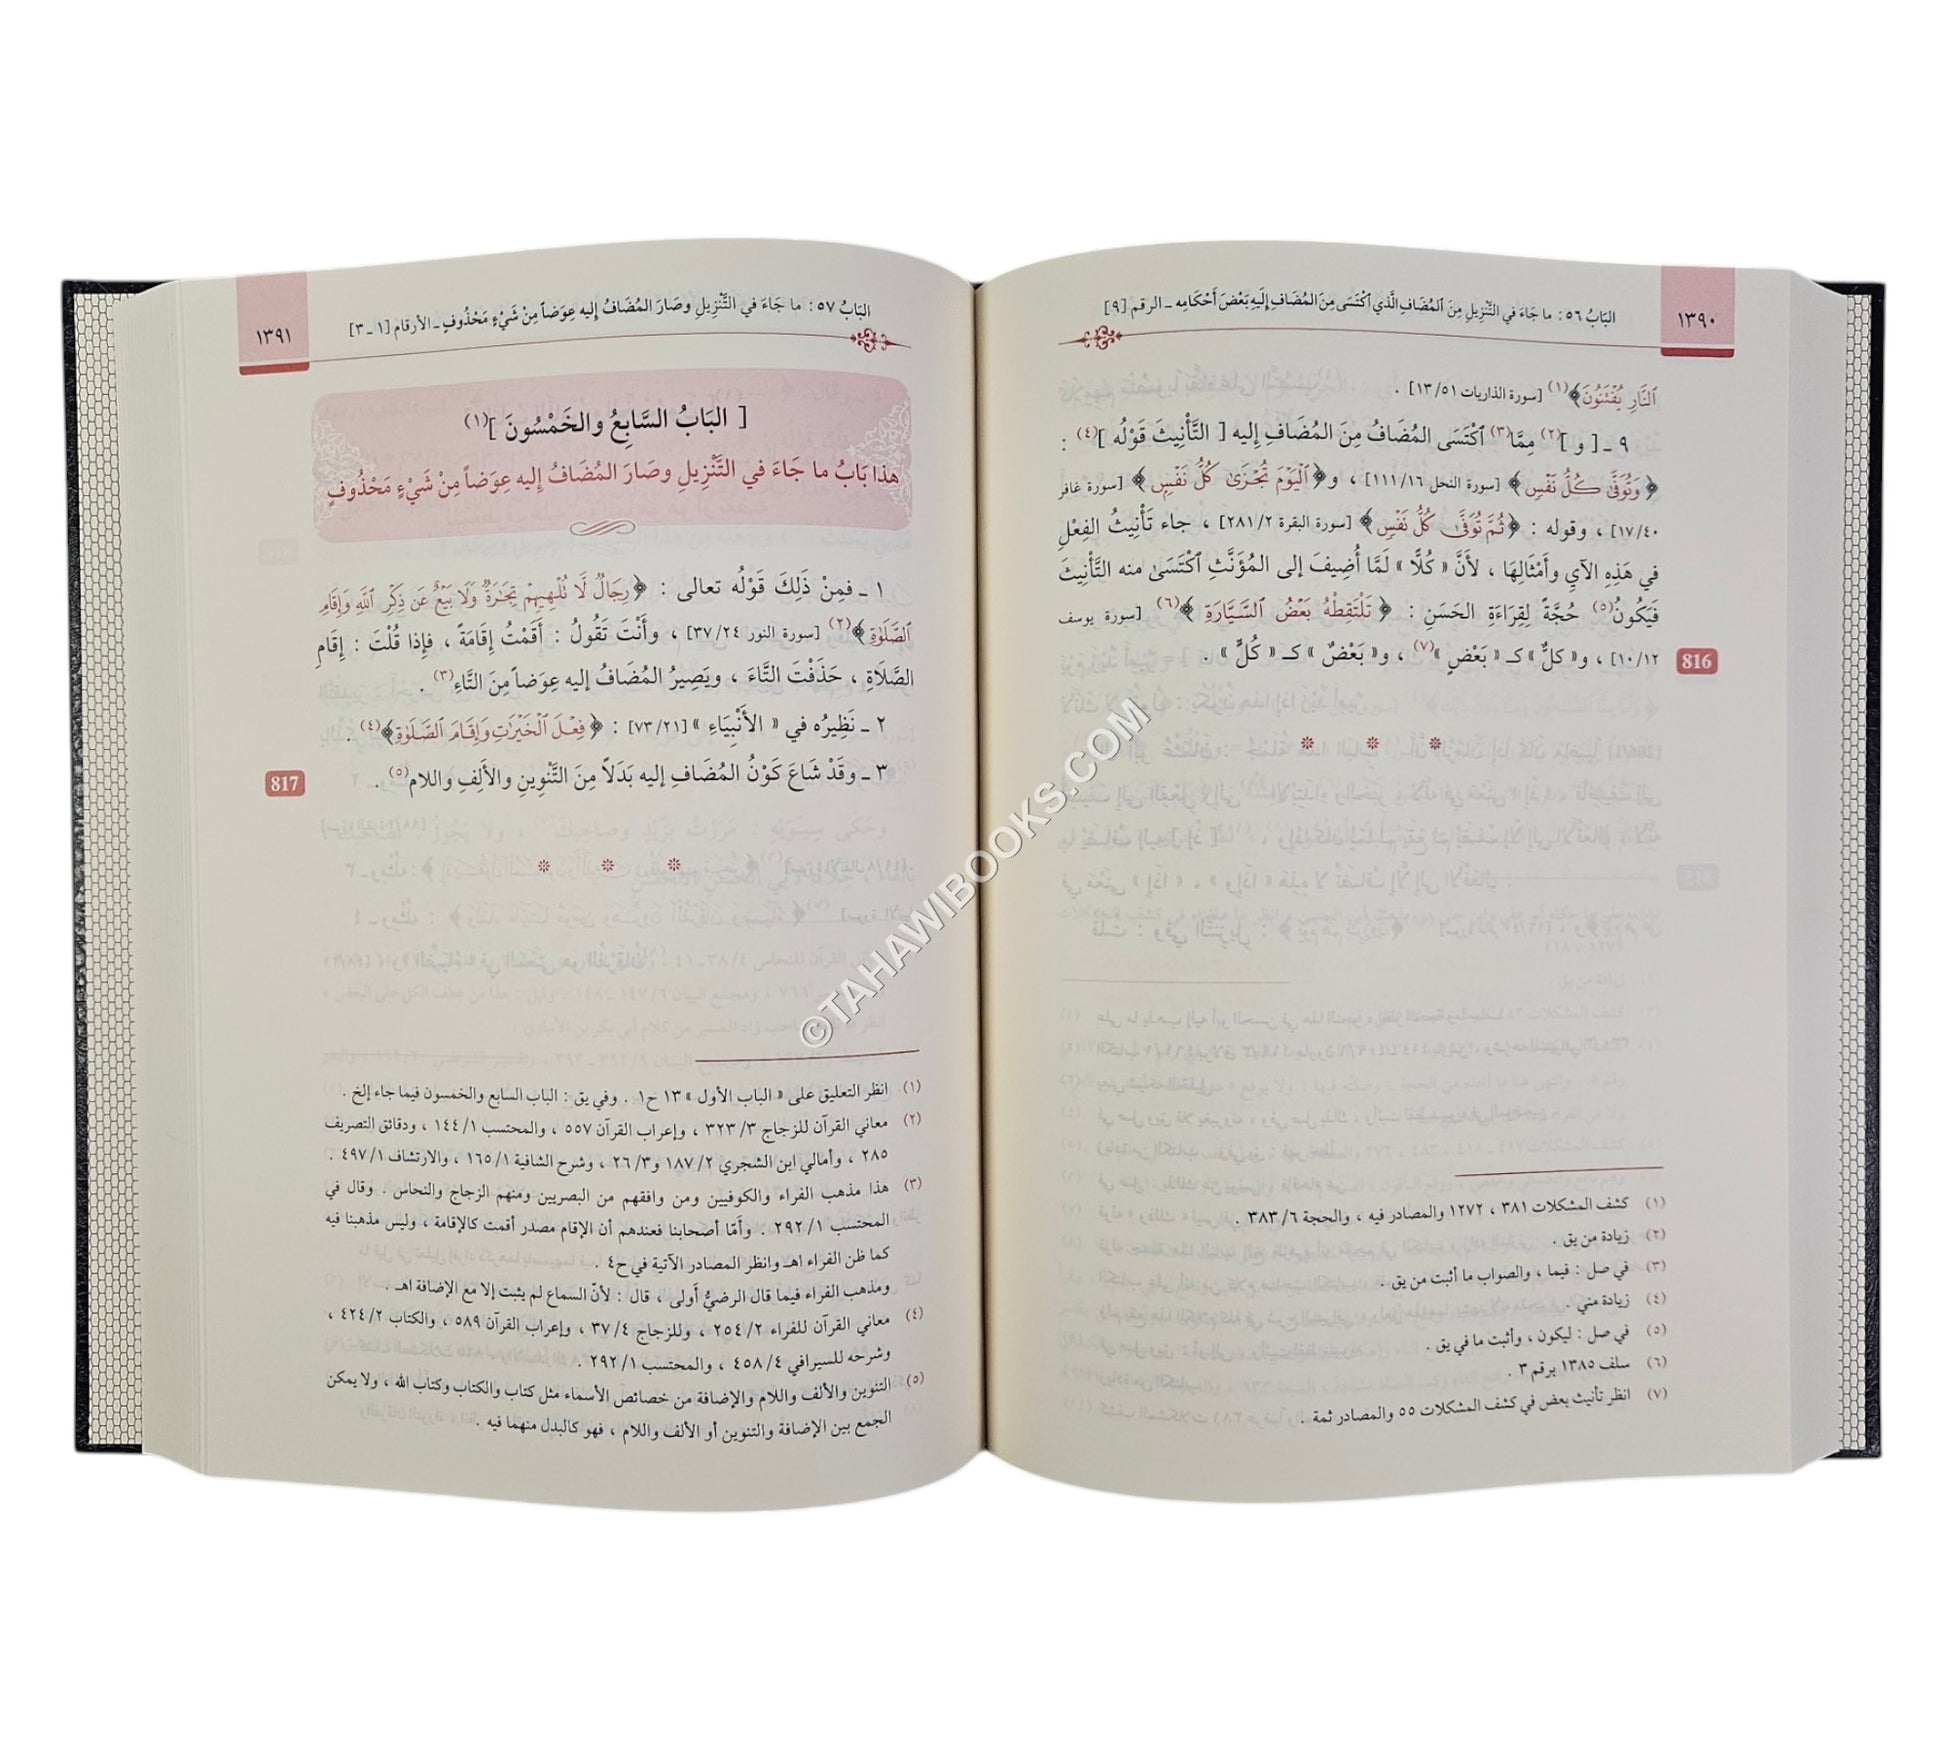 ١٣٩٠
البَابُ ٥٦ : ما جَاءَ في التَّنْزِيلِ مِنَ المُضَافِ الَّذي اكْتَسَى مِنَ المُضَافِ إِلَيهِ بَعْضَ أَحْكَامِه ـ الرقم [٩]
ٱلنَّارِ يُفْتَنُونَ﴾(١) [سورة الذاريات ١٣/٥١] .
٩ ـ [ و ](٢) مِمَّا(٣) اكْتَسَى المُضَافُ مِنَ المُضَافِ إليه [ التَّأْنِيثَ قَوْلُه ](٤) :
﴿ وَتُوَفَّىٰ كُلُّ نَفْسٍ ﴾ [سورة النحل ١١١/١٦] ، و﴿ ٱلْيَوْمَ تُجْزَىٰ كُلُّ نَفْسٍ ﴾ [سورة غافر
١٧/٤٠] ، وقوله : ﴿ ثُمَّ تُوَفَّىٰ كُلُّ نَفْسٍ ﴾ [سورة البقرة ٢٨١/٢] ، جاء تَأْنِيثُ الفِعْلِ
في هَذِهِ الآيِ وأَمْثَالِهَا ، لأَنَّ « كُلًّا » لَمَّا أُضِيفَ إلى المُؤَنَّثِ اكْتَسَىٰ منه التَّأْنِيثَ
فَيَكُونُ(٥) حُجَّةً لِقِرَاءَةِ الحَسَنِ : ﴿ تَلْتَقِطْهُ بَعْضُ ٱلسَّيَّارَةِ ﴾(٦) [سورة يوسف
١٠/١٢] ، و« كلٌّ » كـ « بَعْضٍ »(٧) ، و« بَعْضٌ » كـ « كُلٍّ » .
816
(١) كشف المشكلات ٣٨١ ، ١٢٧٢ والمصادر فيه ، والحجة ٣٨٣/٦ .
(٢) زيادة من يق .
(٣) في صل : فيما ، والصواب ما أثبت من يق .
(٤) زيادة مني .
(٥) في صل : ليكون ، وأثبت ما في يق .
(٦) سلف ١٣٨٥ برقم ٣ .
(٧) انظر تأنيث بعض في كشف المشكلات ٥٥ والمصادر ثمة .
البَابُ ٥٧ : ما جَاءَ في التَّنْزِيلِ وصَارَ المُضَافُ إليه عِوَضاً مِنْ شَيْءٍ مَحْذُوفٍ ـ الأرقام [١ ـ ٣]
١٣٩١
[ البَابُ السَّابِعُ والخَمْسُونَ ](١)
هذا بَابُ ما جَاءَ في التَّنْزِيلِ وصَارَ المُضَافُ إليه عِوَضاً مِنْ شَيْءٍ مَحْذُوفٍ
١ ـ فمِنْ ذَلِكَ قَوْلُه تعالى : ﴿ رِجَالٌ لَّا تُلْهِيهِمْ تِجَٰرَةٌ وَلَا بَيْعٌ عَن ذِكْرِ ٱللَّهِ وَإِقَامِ
ٱلصَّلَوٰةِ ﴾(٢) [سورة النور ٣٧/٢٤] ، وأَنْتَ تَقُولُ : أَقَمْتُ إِقَامَةً ، فإِذا قُلْتَ : إِقَامِ
الصَّلَاةِ ، حَذَفْتَ التَّاءَ ، ويَصِيرُ المُضَافُ إليه عِوَضاً مِنَ التَّاءِ(٣) .
٢ ـ نَظِيرُه في « الأَنْبِيَاءِ » [٧٣/٢١] : ﴿ فِعْلَ ٱلْخَيْرَٰتِ وَإِقَامَ ٱلصَّلَوٰةِ ﴾(٤) .
٣ ـ وقَدْ شَاعَ كَوْنُ المُضَافِ إليه بَدَلاً مِنَ التَّنْوِينِ والأَلِفِ واللام(٥) .
817
(١) انظر التعليق على « الباب الأول » ١٣ ح١ . وفي يق : الباب السابع والخمسون فيما جاء إلخ .
(٢) معاني القرآن للزجاج ٣٢٣/٣ ، وإعراب القرآن ٥٥٧ ، والمحتسب ١٤٤/١ ، ودقائق التصريف
٢٨٥ ، وأمالي ابن الشجري ١٨٧/٢ و٢٦/٣ ، وشرح الشافية ١٦٥/١ ، والارتشاف ٤٩٧/١ .
(٣) هذا مذهب الفراء والكوفيين ومن وافقهم من البصريين ومنهم الزجاج والنحاس . وقال في
المحتسب ٢٩٢/١ . وأمّا أصحابنا فعندهم أن الإقام مصدر أقمت كالإقامة ، وليس مذهبنا فيه
كما ظن الفراء اهـ وانظر المصادر الآتية في ح٤ .
ومذهب الفراء فيما قال الرضيُّ أَولى ، قال : لأنّ السماع لم يثبت إلا مع الإضافة اهـ .
(٤) معاني القرآن للفراء ٢٥٤/٢ ، وللزجاج ٣٧/٤ ، وإعراب القرآن ٥٨٩ ، والكتاب ٤٢٤/٢ ،
وشرحه للسيرافي ٤٥٨/٤ ، والمحتسب ٢٩٢/١ .
(٥) التنوين والألف واللام والإضافة من خصائص الأسماء مثل كتاب والكتاب وكتاب الله ، ولا يمكن
الجمع بين الإضافة والتنوين أو الألف واللام ، فهو كالبدل منهما فيه .
©TAHAWIBOOKS.COM